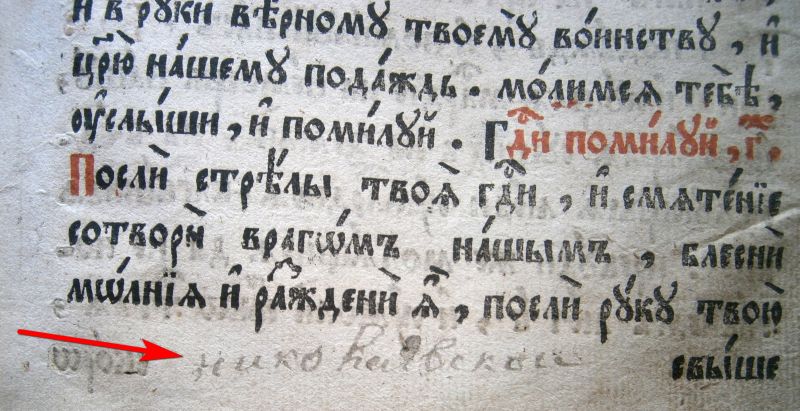 и҆ в руки вѣ́рному твоемꙋ̀ во́инству, и҆
цр҃ю̀ на́шему пода́ждь. мо́лимся тебѣ̀,
ᲂу҆слы́ши, и҆ поми́лꙋй. Гдⷭ҇и поми́лꙋй, г҃.
Послѝ стрѣ́лы твоѧ̀ гдⷭ҇и, и҆ смѧте́нїе
сотворѝ враго́мъ на́шымъ, блеснѝ
мо́лнїѧ и҆ ражденѝ ѧ҆̀, послѝ рꙋ́кꙋ твою̀
свы́ше